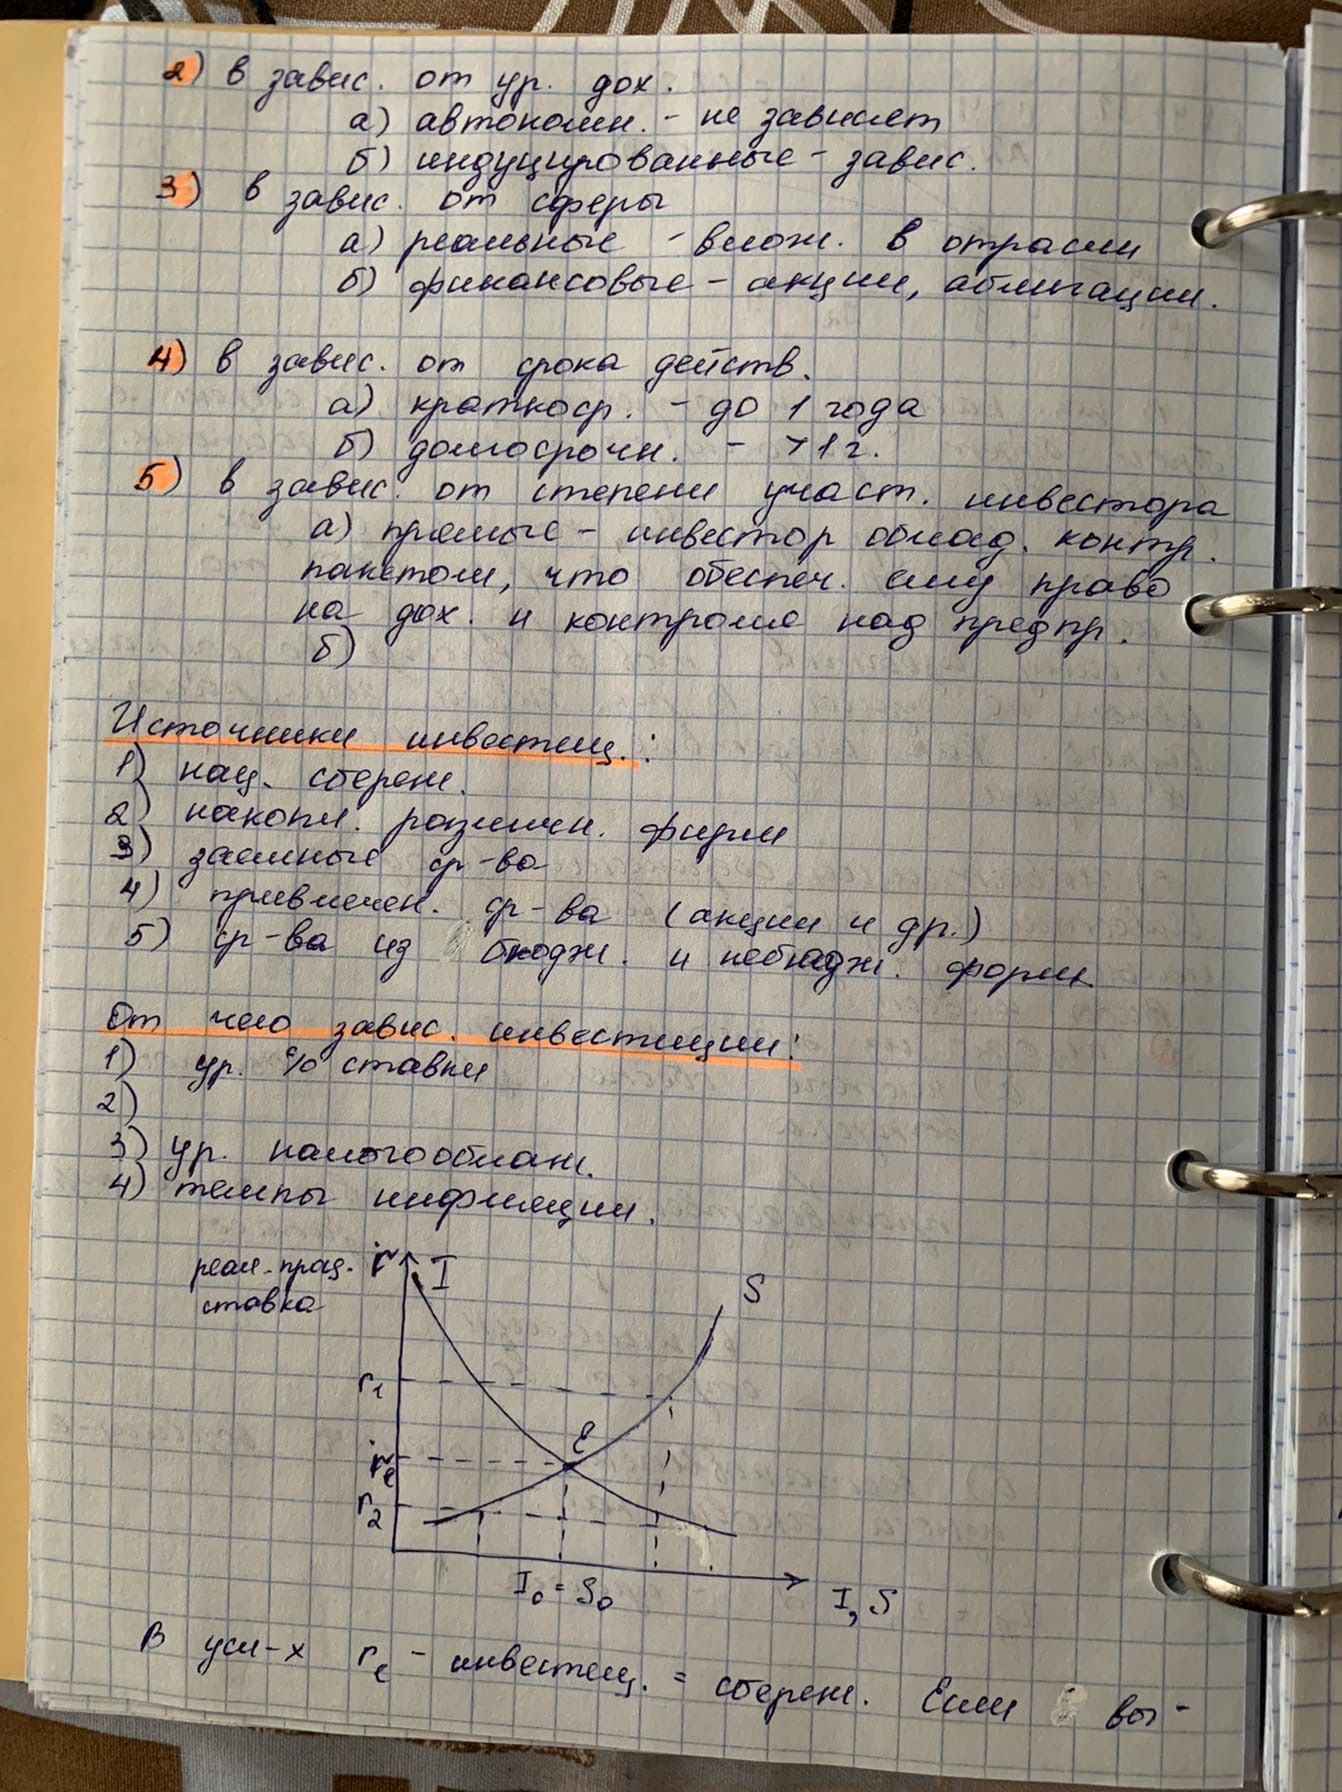 2) в завис. от ур. дох.
а) автономн. - не зависят
б) индуцированные - завис.
3) в завис. от сферы
а) реальные - влож. в отрасли
б) финансовые - акции, облигации.
4) в завис. от срока действ.
а) краткоср. - до 1 года
б) долгосрочн. - >1 г.
5) в завис. от степени участ. инвестора
а) прямые - инвестор облад. контр.
пакетом, что обеспеч. ему право
на дох. и контроль над предпр.
б)
Источники инвестиц.:
1) нац. сбереж.
2) накопл. различн. фирм
3) заемные ср-ва
4) привлечен. ср-ва (акции и др.)
5) ср-ва из бюдж. и небюдж. форм
От чего завис. инвестиции:
1) ур. % ставки
2)
3) ур. налогооблаж.
4) темпы инфляции.
реал. проц. r I
ставка
S
r1
E
re
r2
I0 = S0
I, S
В усл-х re - инвестиц. = сбереж. Если вы-